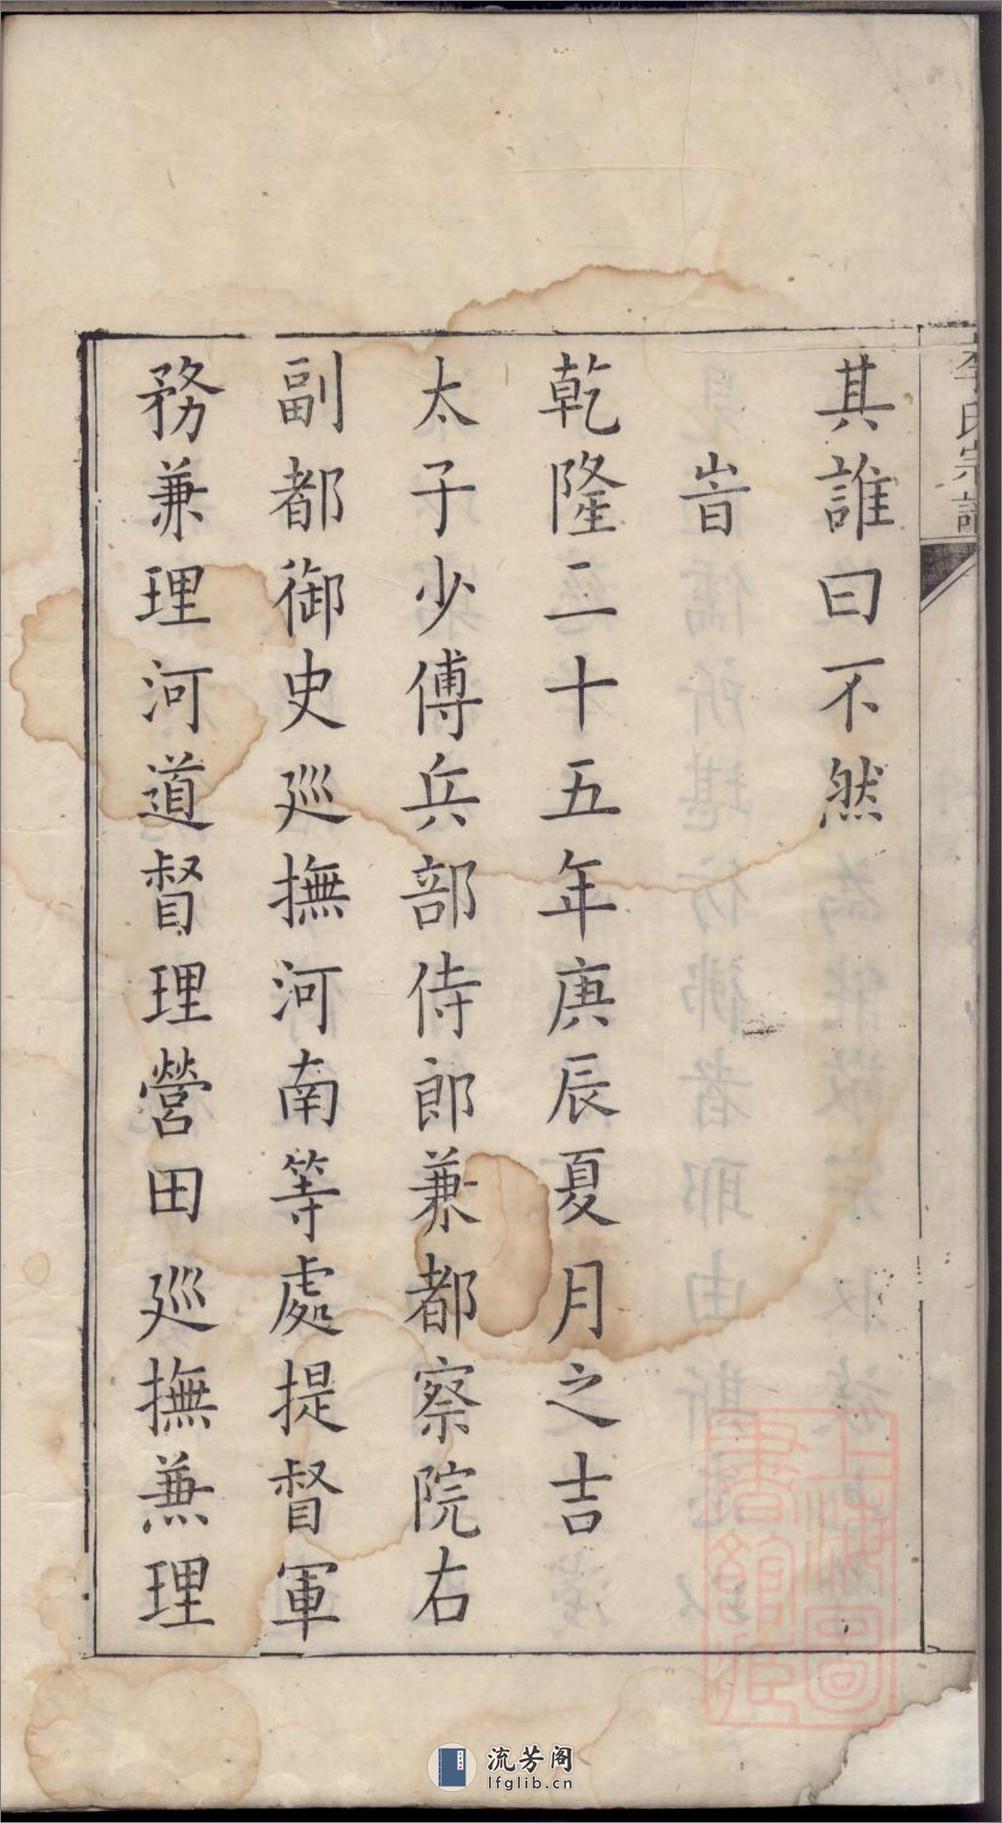 李氏宗譜
其誰曰不然
旹
乾隆二十五年庚辰夏月之吉
太子少傅兵部侍郎兼都察院右
副都御史廵撫河南等處提督軍
務兼理河道督理營田廵撫兼理
上海圖
書館藏
流芳阁
lfglib.cn